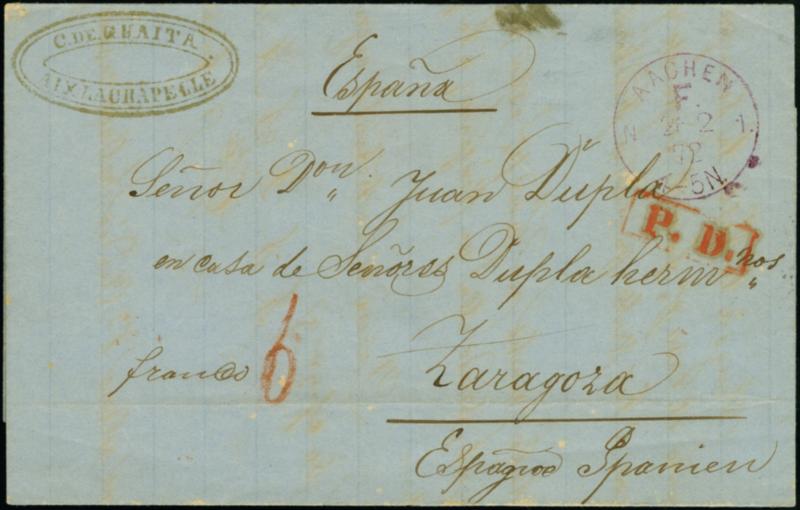 C. DE. GUAITA
AIX LACHAPELLE
España
AACHEN
F.
N 2 1.
72
-5N.
P. D.
Señor Don. Juan Dupla
en casa de Señores Dupla hermnos
franco 6
Zaragoza
Spanien